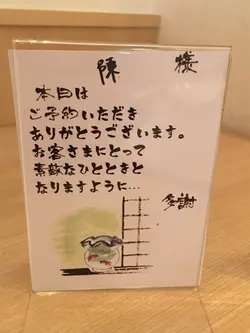 陳 様
本日は
ご予約いただき
ありがとうございます。
お客さまにとって
素敵なひとときと
なりますように…
多謝